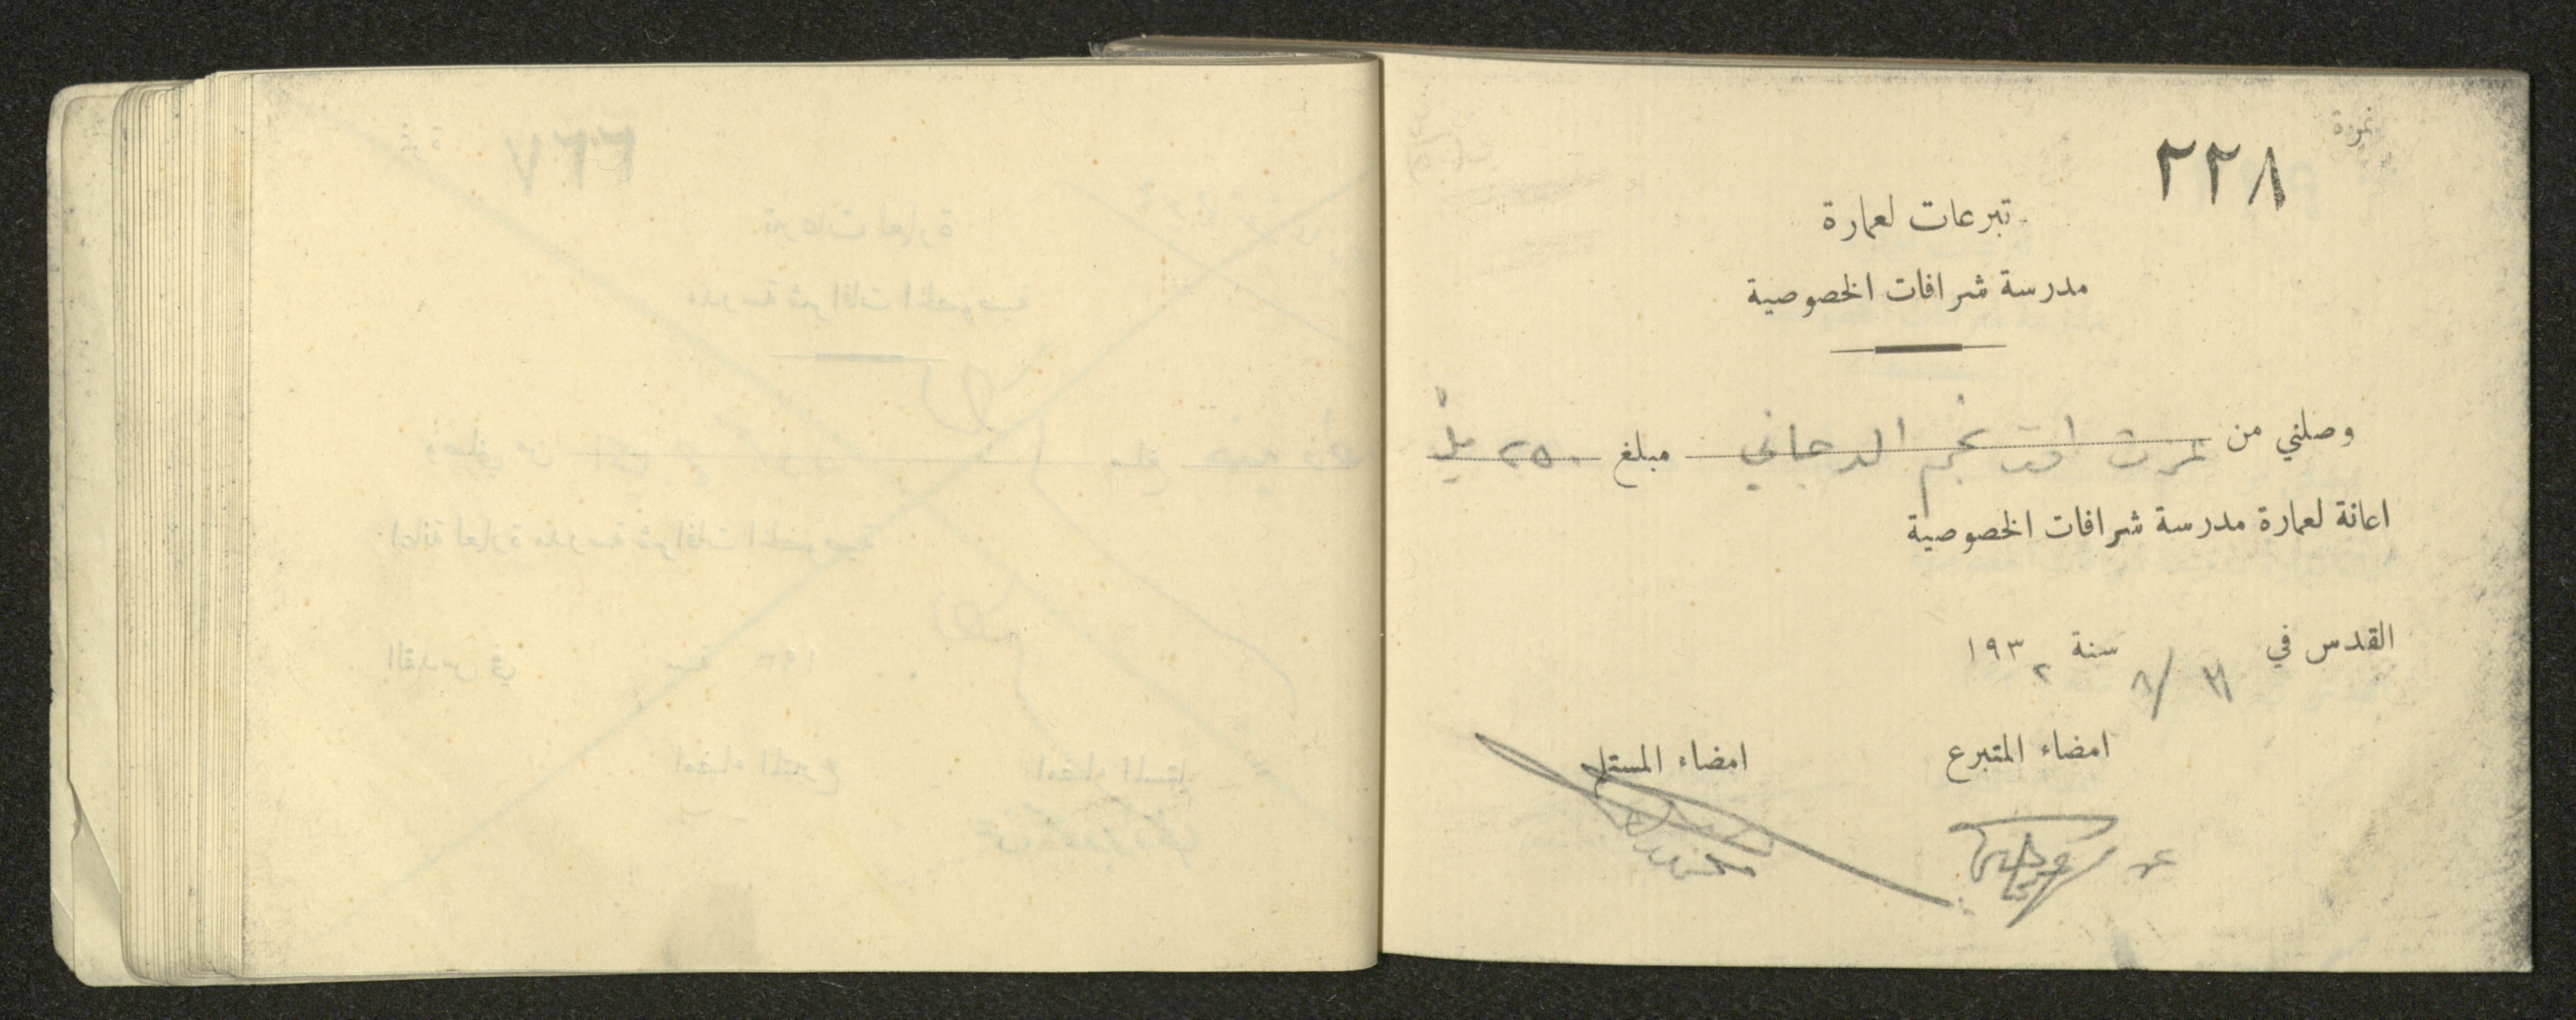 نمرة
٢٢٨
تبرعات لعمارة
مدرسة شرافات الخصوصية
وصلني من عزت افندي نجم الدجاني مبلغ ٢٥٠ ملاً
اعانة لعمارة مدرسة شرافات الخصوصية
القدس في ٣١/٨ سنة ١٩٣٢
امضاء المتبرع
امضاء المستلم